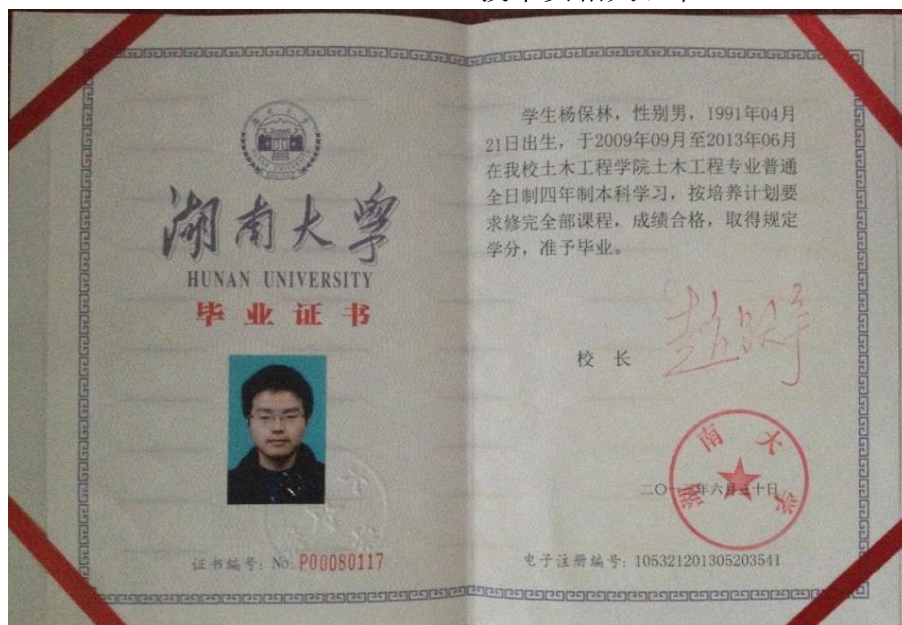 湖南大学
HUNAN UNIVERSITY
毕业证书
证书编号: No: P00080117
学生杨保林，性别男，1991年04月
21日出生，于2009年09月至2013年06月
在我校土木工程学院土木工程专业普通
全日制四年制本科学习，按培养计划要
求修完全部课程，成绩合格，取得规定
学分，准予毕业。
校 长
湖南大学
电子注册编号: 105321201305203541